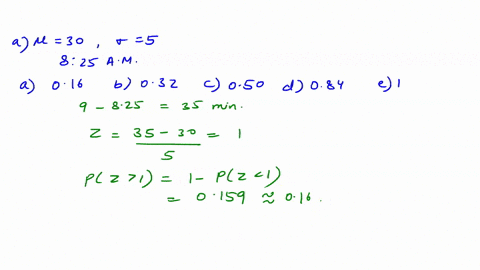 a) μ = 30 , σ = 5
8:25 A.M.
a) 0.16 b) 0.32 c) 0.50 d) 0.84 e) 1
9 - 8.25 = 35 min.
Z = \frac{35 - 30}{5} = 1
P(Z > 1) = 1 - P(Z < 1)
= 0.159 ≈ 0.16 .